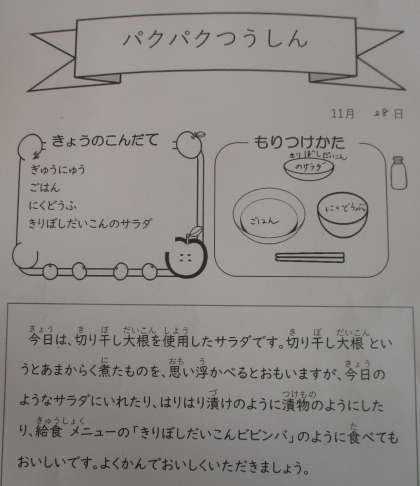 パクパクつうしん
11月 28日
きょうのこんだて
ぎゅうにゅう
ごはん
にくどうふ
きりぼしだいこんのサラダ
もりつけかた
きりぼしだいこん
のサラダ
ごはん
にくどうふ
今日は、切り干し大根を使用したサラダです。切り干し大根 とい
うとあまからく煮たものを、思い浮かべるとおもいますが、今日の
ようなサラダにいれたり、はりはり漬けのように漬物のようにした
り、給食 メニューの「きりぼしだいこんビビンバ」のように食べても
おいしいです。よくかんでおいしくいただきましょう。